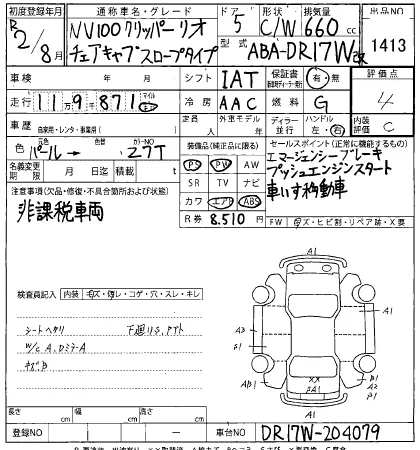 初度登録年月 通称車名・グレード ドア 形状 排気量 出品NO
R2/8月 NV100クリッパーリオ 5 C/W 660cc
チェアキャブスロープタイプ 型式 ABA-DR17W改 1413
車検 年 月 シフト IAT 保証書 有・無 評価点
走行 11万9千871 マイル km 冷房 AAC 燃料 G 4
車歴 自家用・レンタ・事業用( ) 定員 人 外車モデル 年 ディーラー 並行 ハンドル 左・右 内装評価 C
色 元色 パール→ 色替 カラーNO Z7T 装備品(純正品に限る) セールスポイント(正常に機能するもの)
名義変更期限 月 日迄 積載 t PS PW AW エマージェンシーブレーキ
注意事項(欠品・修復・不具合箇所および状態) SR TV ナビ プッシュエンジンスタート
非課税車両 カワ エアB ABS 車いす移動車
R券 8.510円 FW キズ・ヒビ割・リペア跡・X要
検査員記入 内装 キズ・汚レ・コゲ・穴・スレ・キレ
A1
シートヘタリ 下廻りS,P
W/C A,Dミラ-A
キズB
A2 A1
B1 B1
AB1 XX A1 B1 A2
A1
長さ cm 幅 cm 高さ cm
登録NO — 車台NO DR17W-204079